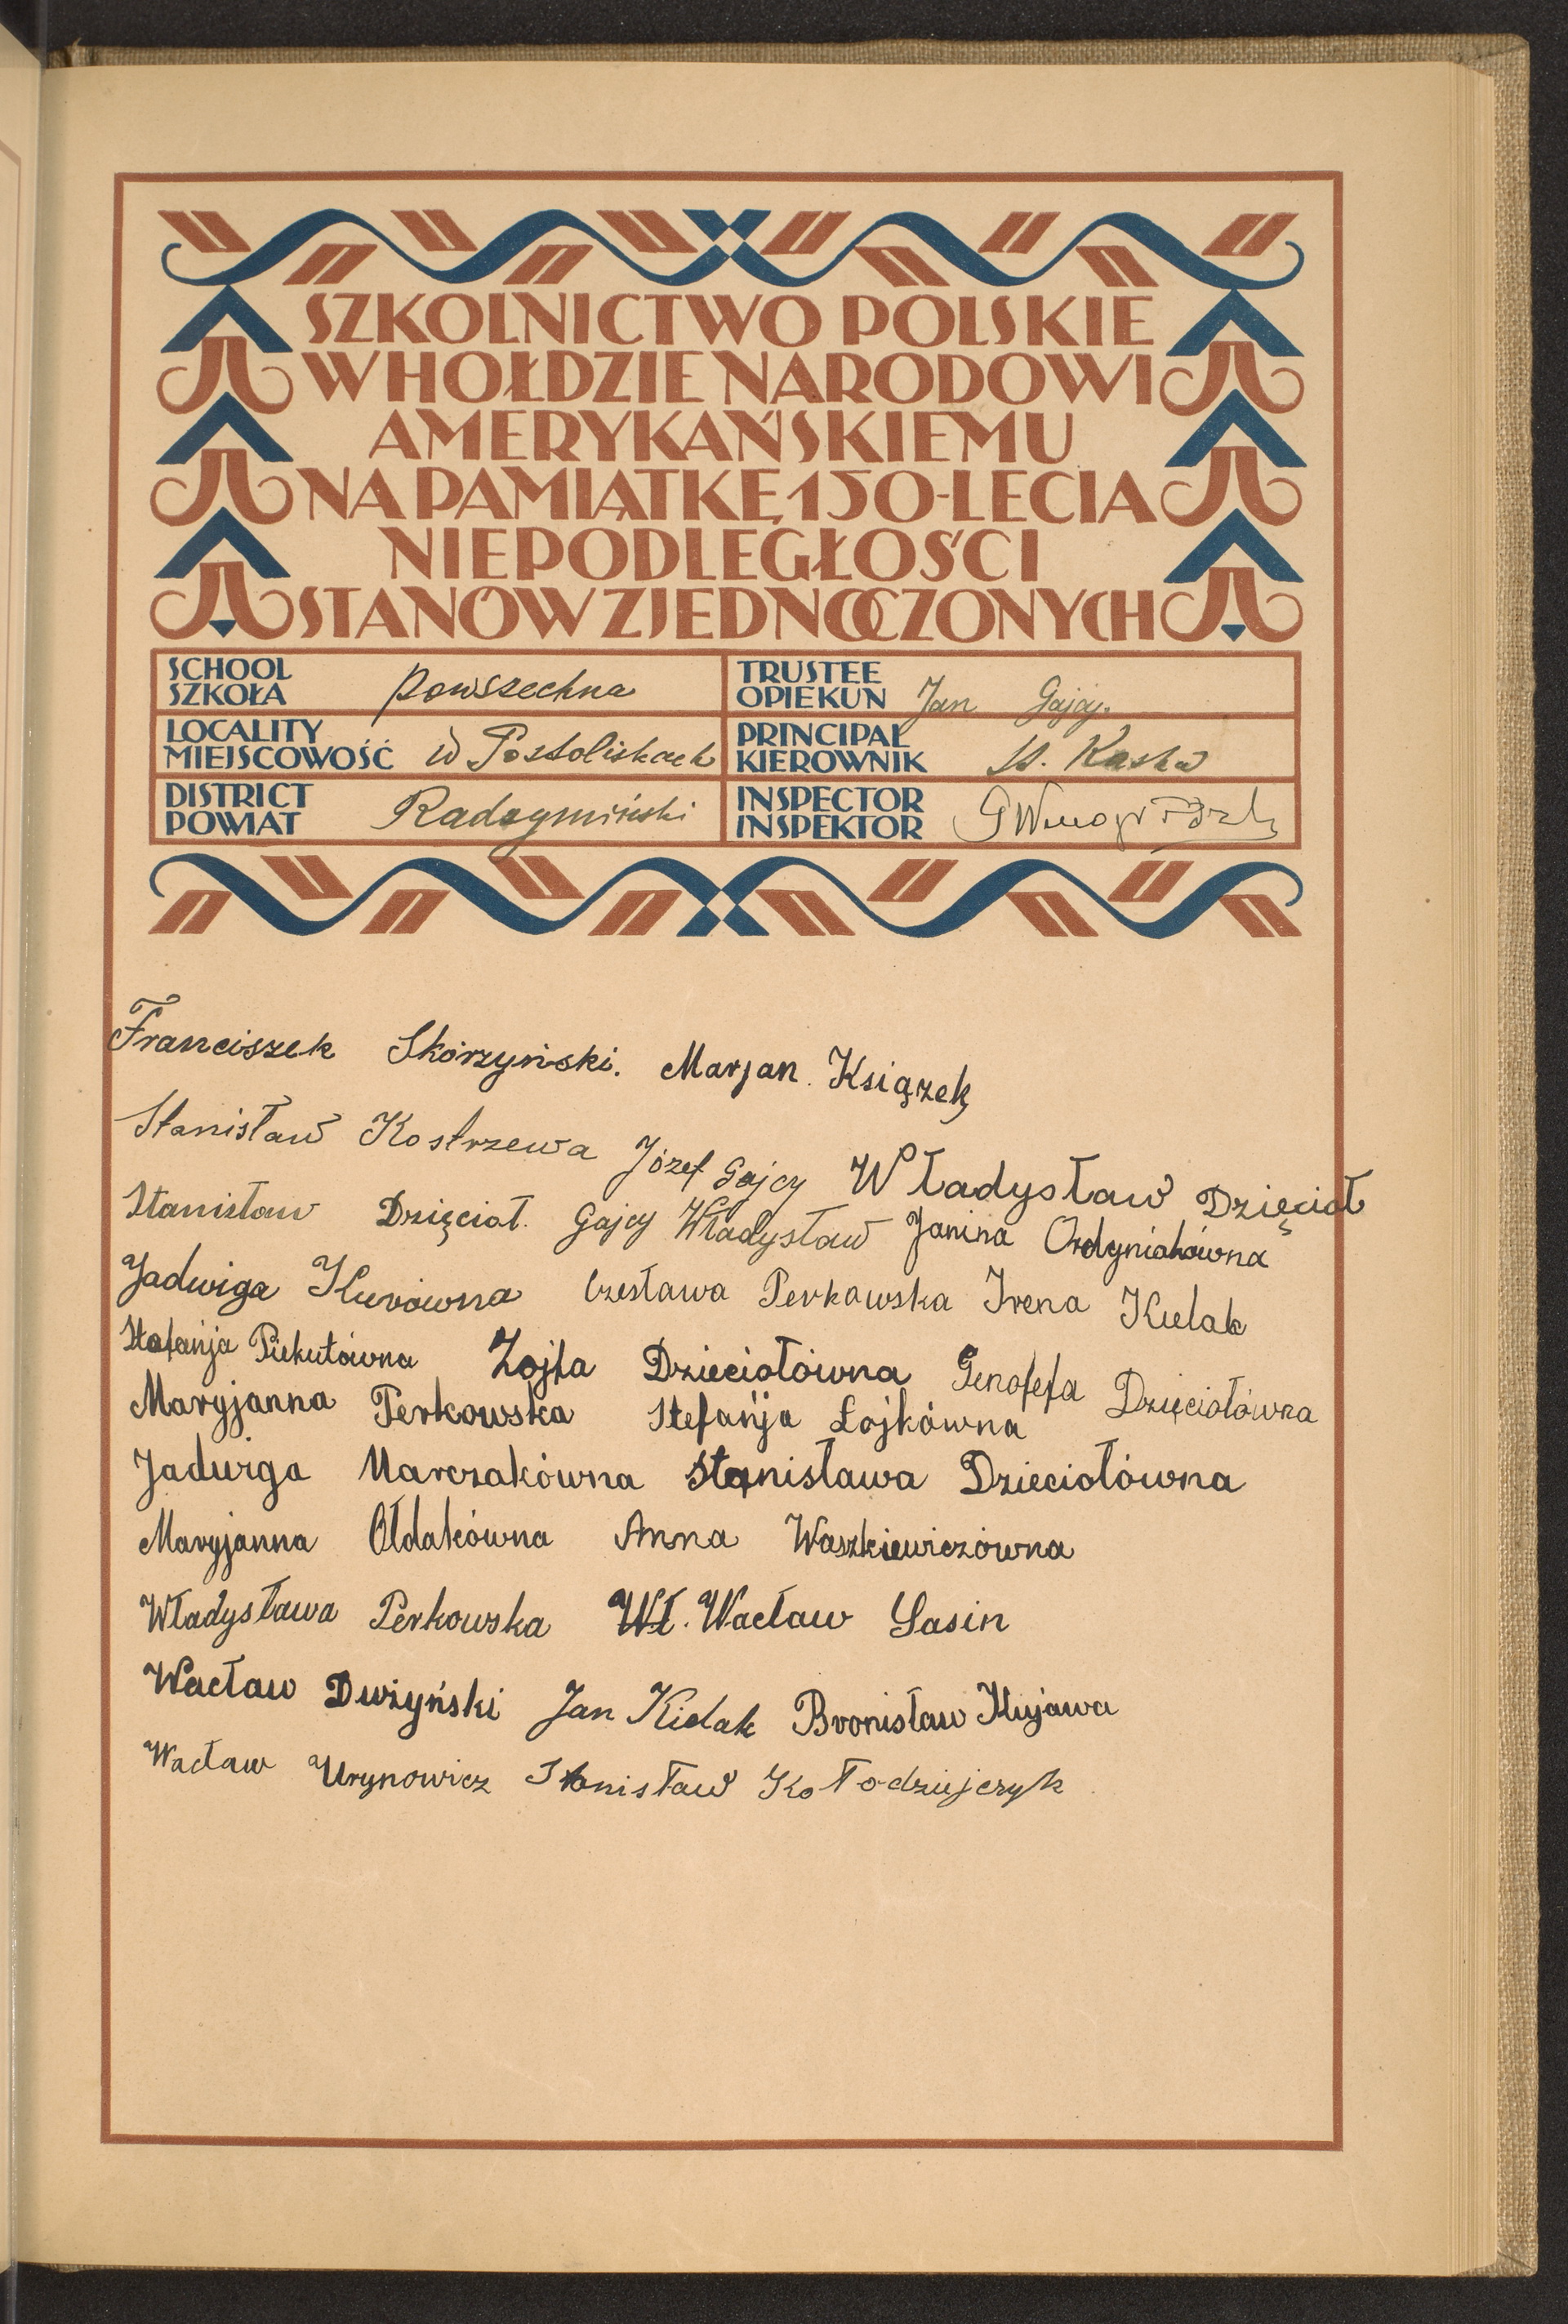 SZKOLNICTWO POLSKIE
W HOŁDZIE NARODOWI
AMERYKAŃSKIEMU
NA PAMIĄTKĘ 150-LECIA
NIEPODLEGŁOŚCI
STANÓW ZJEDNOCZONYCH
SCHOOL
SZKOŁA powszechna
TRUSTEE
OPIEKUN Jan Gajcy.
LOCALITY
MIEJSCOWOŚĆ w Postoliskach
PRINCIPAL
KIEROWNIK St. Kaska
DISTRICT
POWIAT Radzymiński
INSPECTOR
INSPEKTOR
Franciszek Skórzyński. Marjan. Książek
Stanisław Kostrzewa Józef Gajcy Władysław Dzięcioł
Stanisław Dzięcioł. Gajcy Władysław Janina Ordyniakówna
Jadwiga Kurówna Czesława Perkowska Irena Kulak
Stefańja Piekutówna Zojfa Dzieciołówna Genofefa Dzięciołówna
Maryjanna Perkowska Stefańja Łojkówna
Jadwiga Marczakówna Stanisława Dzieciołówna
Maryjanna Ołdakówna Anna Waszkiewiczówna
Władysława Perkowska Wł. Wacław Sasin
Wacław Dwżyński Jan Kielak Bronisław Kujawa
Wacław Urynowicz Stanisław Kołodziejczyk